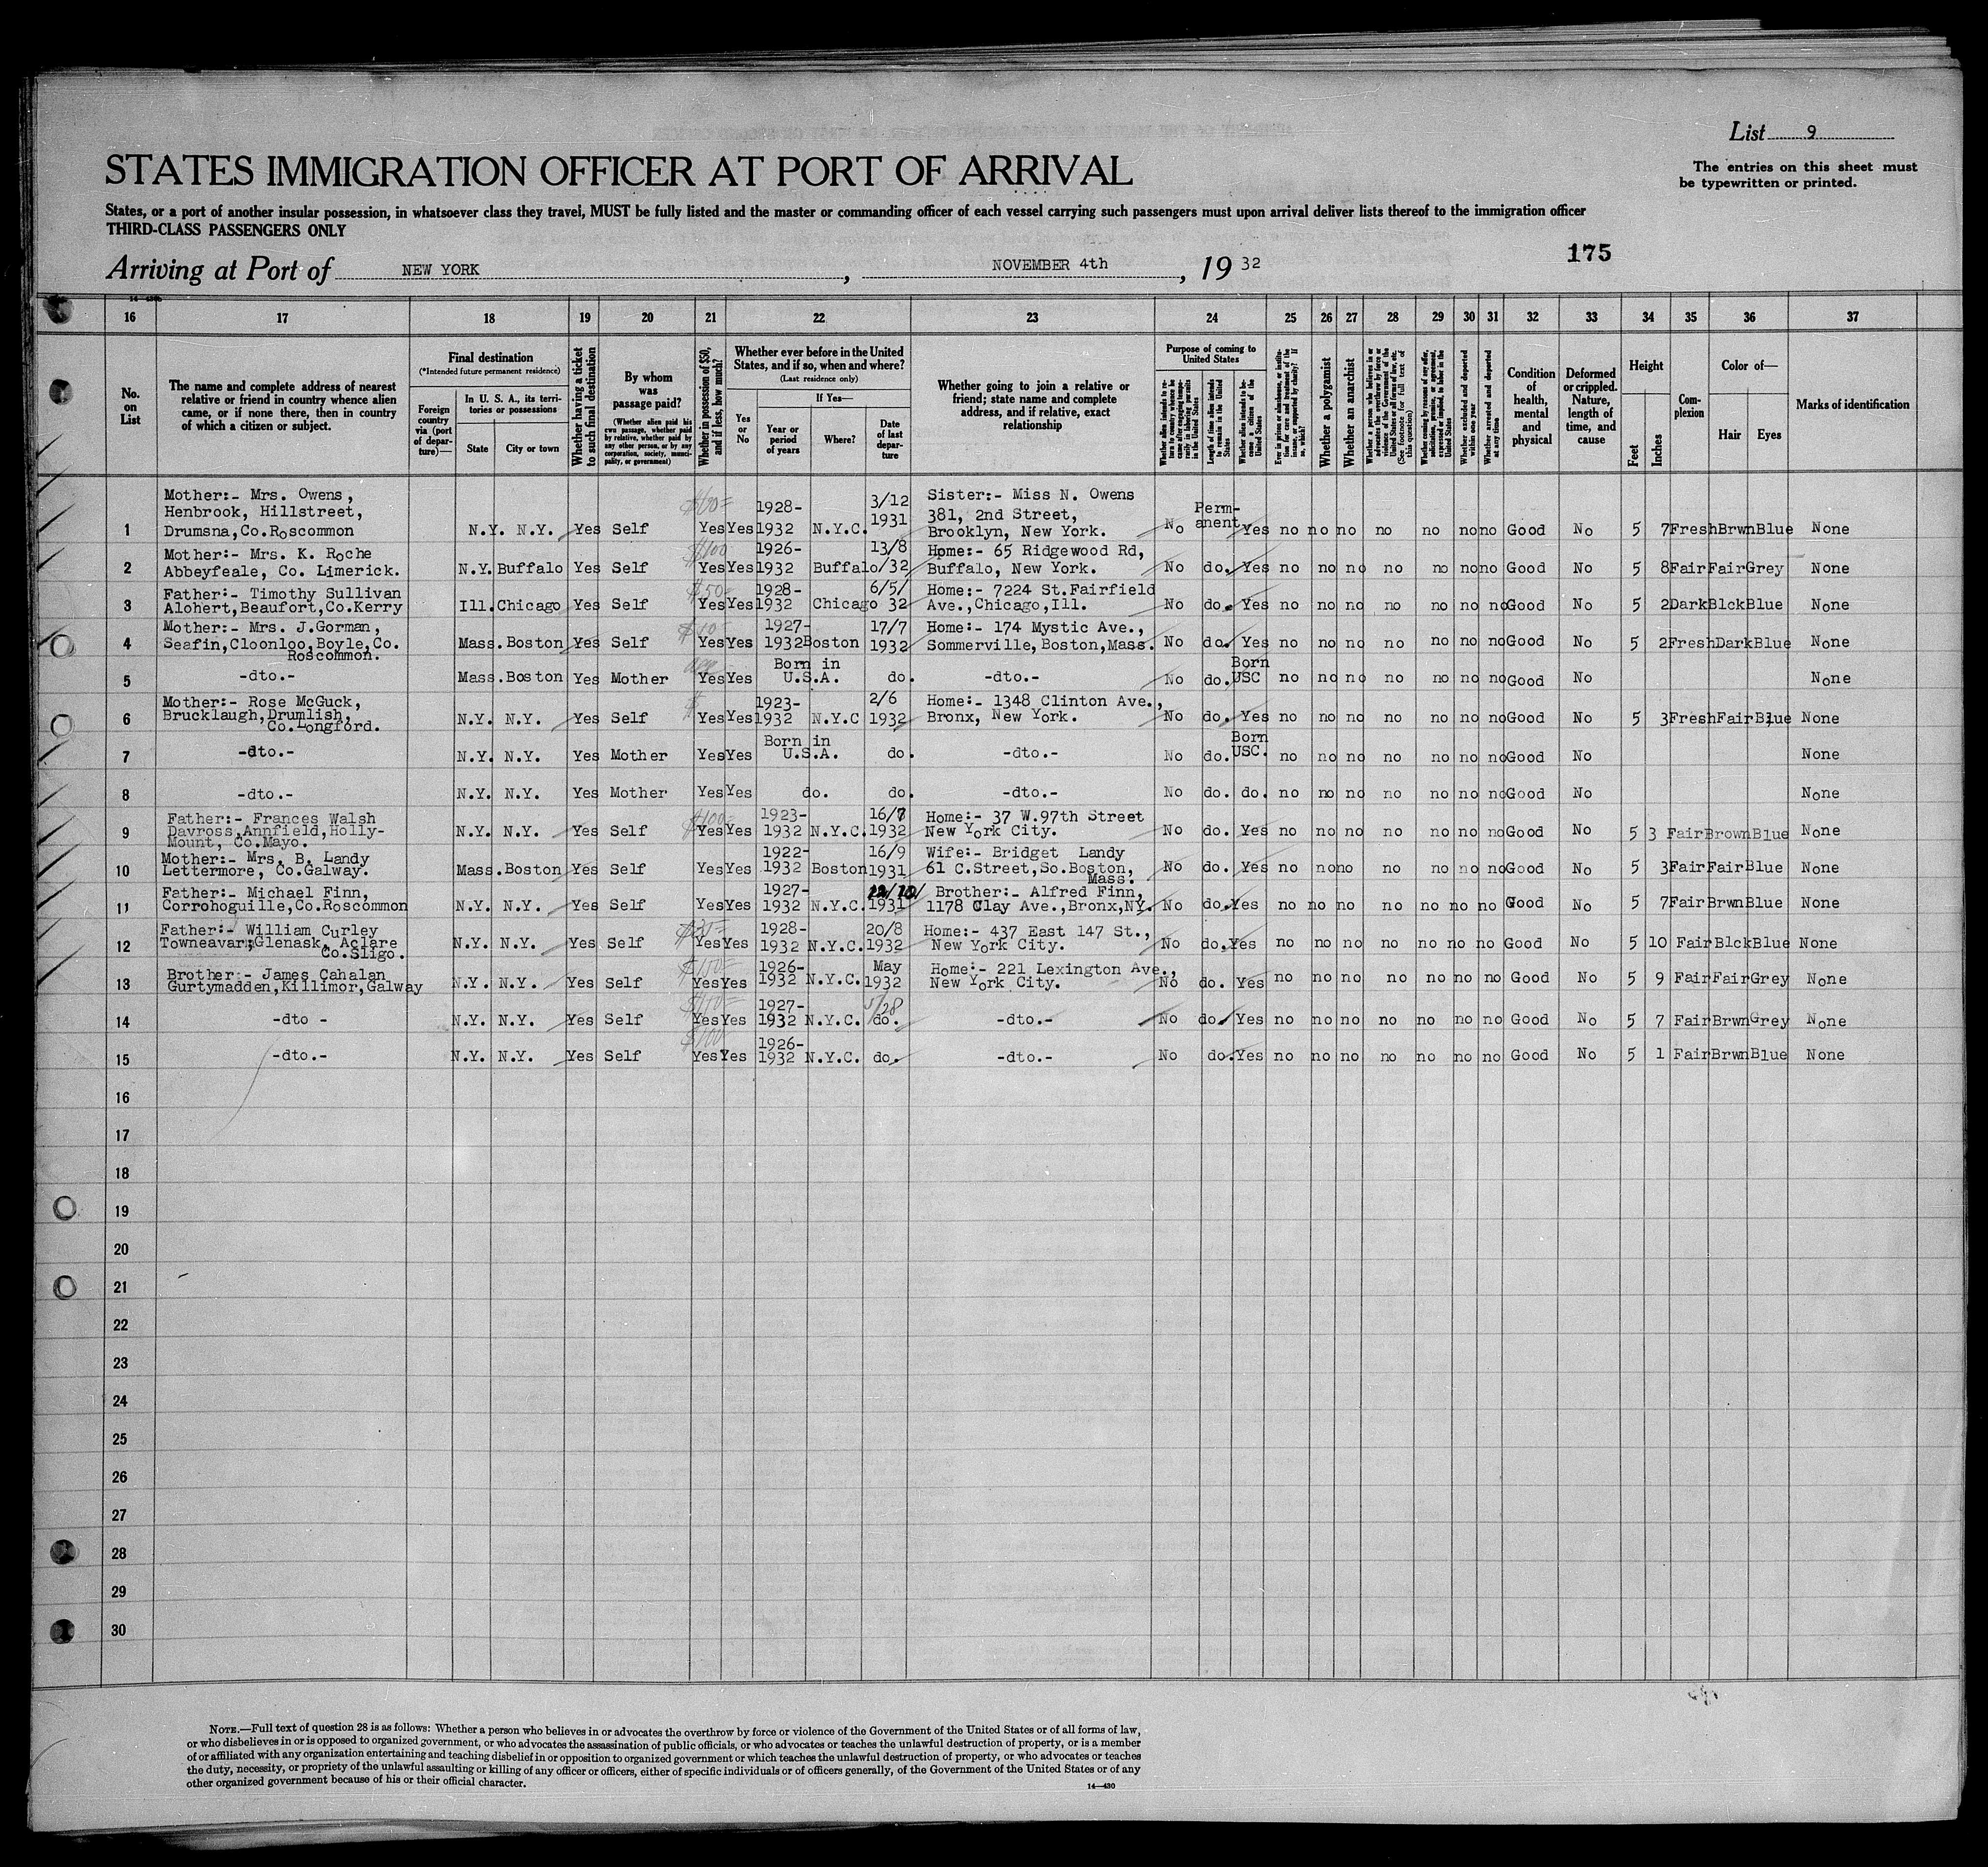 List 9
The entries on this sheet must
be typewritten or printed.
STATES IMMIGRATION OFFICER AT PORT OF ARRIVAL
States, or a port of another insular possession, in whatsoever class they travel, MUST be fully listed and the master or commanding officer of each vessel carrying such passengers must upon arrival deliver lists thereof to the immigration officer
THIRD-CLASS PASSENGERS ONLY
175
Arriving at Port of NEW YORK, NOVEMBER 4th, 19 32
16 17 18 19 20 21 22 23 24 25 26 27 28 29 30 31 32 33 34 35 36 37
No. on List
The name and complete address of nearest relative or friend in country whence alien came, or if none there, then in country of which a citizen or subject.
Final destination
(*Intended future permanent residence)
Foreign country via (port of departure)—
In U. S. A., its territories or possessions
State City or town
Whether having a ticket to such final destination
By whom was passage paid?
(Whether alien paid his own passage, whether paid by relative, whether paid by any other person, or by any corporation, society, municipality, or government)
Whether in possession of $50, and if less, how much?
Whether ever before in the United States, and if so, when and where?
(Last residence only)
Yes or No
If Yes—
Year or period of years
Where?
Date of last departure
Whether going to join a relative or friend; state name and complete address, and if relative, exact relationship
Purpose of coming to United States
Whether alien intends to return to country whence he came after engaging temporarily in laboring pursuits in the United States
Length of time alien intends to remain in the United States
Whether alien intends to become a citizen of the United States
Ever in prison or almshouse, or institution for care and treatment of the insane, or supported by charity? If so, which?
Whether a polygamist
Whether an anarchist
Whether a person who believes in or advocates the overthrow by force or violence of the Government of the United States or all forms of law, etc. (See footnote for full text of this question)
Whether coming by reason of any offer, solicitation, promise, or agreement, expressed or implied, to labor in the United States
Whether excluded and deported within one year
Whether arrested and deported at any time
Condition of health, mental and physical
Deformed or crippled. Nature, length of time, and cause
Height
Feet Inches
Complexion
Color of—
Hair Eyes
Marks of identification
1 Mother:- Mrs. Owens, Henbrook, Hillstreet, Drumsna,Co.Roscommon N.Y. N.Y. Yes Self Yes Yes 1928-1932 N.Y.C. 3/12 1931 Sister:- Miss N. Owens 381, 2nd Street, Brooklyn, New York. No Permanent Yes no no no no no no no Good No 5 7 Fresh Brwn Blue None
2 Mother:- Mrs. K. Roche Abbeyfeale, Co. Limerick. N.Y. Buffalo Yes Self $100 Yes Yes 1926-1932 Buffalo 13/8/32 Home:- 65 Ridgewood Rd, Buffalo, New York. No do. Yes no no no no no no no Good No 5 8 Fair Fair Grey None
3 Father:- Timothy Sullivan Alohert,Beaufort,Co.Kerry Ill. Chicago Yes Self $50 Yes Yes 1928-1932 Chicago 6/5/32 Home:- 7224 St.Fairfield Ave.,Chicago,Ill. No do. Yes no no no no no no no Good No 5 2 Dark Blck Blue None
4 Mother:- Mrs. J.Gorman, Seafin,Cloonloo,Boyle,Co. Roscommon. Mass. Boston Yes Self Yes Yes 1927-1932 Boston 17/7 1932 Home:- 174 Mystic Ave., Sommerville, Boston,Mass. No do. Yes no no no no no no no Good No 5 2 Fresh Dark Blue None
5 -dto.- Mass. Boston Yes Mother Yes Yes Born in U.S.A. do. -dto.- No do. Born USC no no no no no no no Good No None
6 Mother:- Rose McGuck, Brucklaugh,Drumlish, Co.Longford. N.Y. N.Y. Yes Self Yes Yes 1923-1932 N.Y.C 2/6 1932 Home:- 1348 Clinton Ave., Bronx, New York. No do. Yes no no no no no no no Good No 5 3 Fresh Fair Blue None
7 -dto.- N.Y. N.Y. Yes Mother Yes Yes Born in U.S.A. do. -dto.- No do. Born USC. no no no no no no no Good No None
8 -dto.- N.Y. N.Y. Yes Mother Yes Yes do. do. -dto.- No do. do. no no no no no no no Good No None
9 Father:- Frances Walsh Davross,Annfield,Holly-Mount, Co.Mayo. N.Y. N.Y. Yes Self $100 Yes Yes 1923-1932 N.Y.C. 16/7 1932 Home:- 37 W.97th Street New York City. No do. Yes no no no no no no no Good No 5 3 Fair Brown Blue None
10 Mother:- Mrs. B. Landy Lettermore, Co.Galway. Mass. Boston Yes Self Yes Yes 1922-1932 Boston 16/9 1931 Wife:- Bridget Landy 61 C.Street,So.Boston, Mass. No do. Yes no no no no no no no Good No 5 3 Fair Fair Blue None
11 Father:- Michael Finn, Corrohoguille,Co.Roscommon N.Y. N.Y. Yes Self Yes Yes 1927-1932 N.Y.C. 1931 Brother:- Alfred Finn, 1178 Clay Ave.,Bronx,NY. No do. Yes no no no no no no no Good No 5 7 Fair Brwn Blue None
12 Father:- William Curley Towneavar;Glenask, Aclare Co.Sligo. N.Y. N.Y. Yes Self Yes Yes 1928-1932 N.Y.C. 20/8 1932 Home:- 437 East 147 St., New York City. No do. Yes no no no no no no no Good No 5 10 Fair Blck Blue None
13 Brother:- James Cahalan Gurtymadden,Killimor,Galway N.Y. N.Y. Yes Self $150 Yes Yes 1926-1932 N.Y.C. May 1932 Home:- 221 Lexington Ave., New York City. No do. Yes no no no no no no no Good No 5 9 Fair Fair Grey None
14 -dto - N.Y. N.Y. Yes Self Yes Yes 1927-1932 N.Y.C. 5/28 do. -dto.- No do. Yes no no no no no no no Good No 5 7 Fair Brwn Grey None
15 -dto.- N.Y. N.Y. Yes Self $100 Yes Yes 1926-1932 N.Y.C. do. -dto.- No do. Yes no no no no no no no Good No 5 1 Fair Brwn Blue None
16
17
18
19
20
21
22
23
24
25
26
27
28
29
30
NOTE.—Full text of question 28 is as follows: Whether a person who believes in or advocates the overthrow by force or violence of the Government of the United States or of all forms of law,
or who disbelieves in or is opposed to organized government, or who advocates the assassination of public officials, or who advocates or teaches the unlawful destruction of property, or is a member
of or affiliated with any organization entertaining and teaching disbelief in or opposition to organized government or which teaches the unlawful destruction of property, or who advocates or teaches
the duty, necessity, or propriety of the unlawful assaulting or killing of any officer or officers, either of specific individuals or of officers generally, of the Government of the United States or of any
other organized government because of his or their official character.
14—430